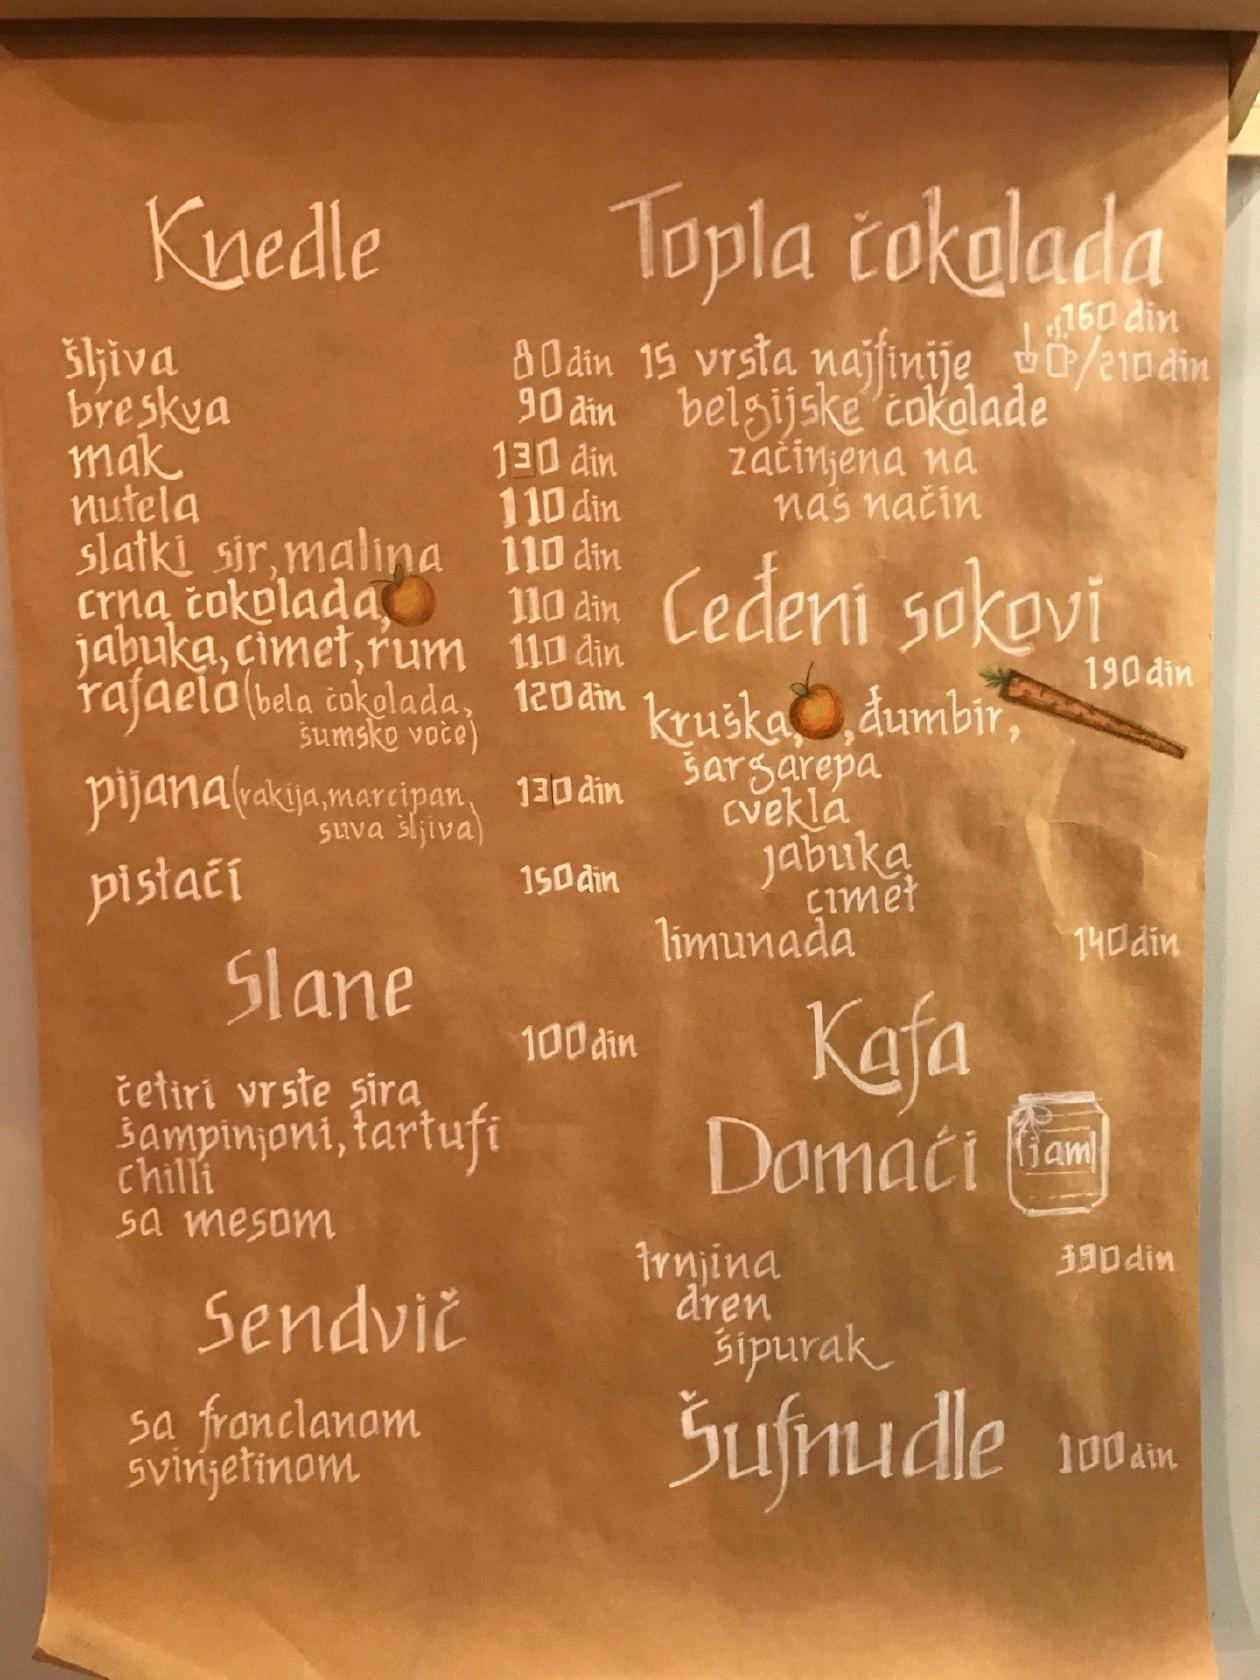 Knedle
šljiva 80 din
breskva 90 din
mak 130 din
nutela 110 din
slatki sir, malina 110 din
crna čokolada, 110 din
jabuka, cimet, rum 110 din
rafaelo (bela čokolada, 120 din
šumsko voće)
pijana (rakija, marcipan, 130 din
suva šljiva)
pistaći 150 din
Slane
100 din
četiri vrste sira
šampinjoni, tartufi
chilli
sa mesom
Sendvič
sa fronclanom
svinjetinom
Topla čokolada
160 din
15 vrsta najfinije /210 din
belgijske čokolade
začinjena na
naš način
Ceđeni sokovi
190 din
kruška, , đumbir,
šargarepa
cvekla
jabuka
cimet
limunada 140 din
Kafa
Domaći jam
trnjina 390 din
dren
šipurak
Šufnudle 100 din